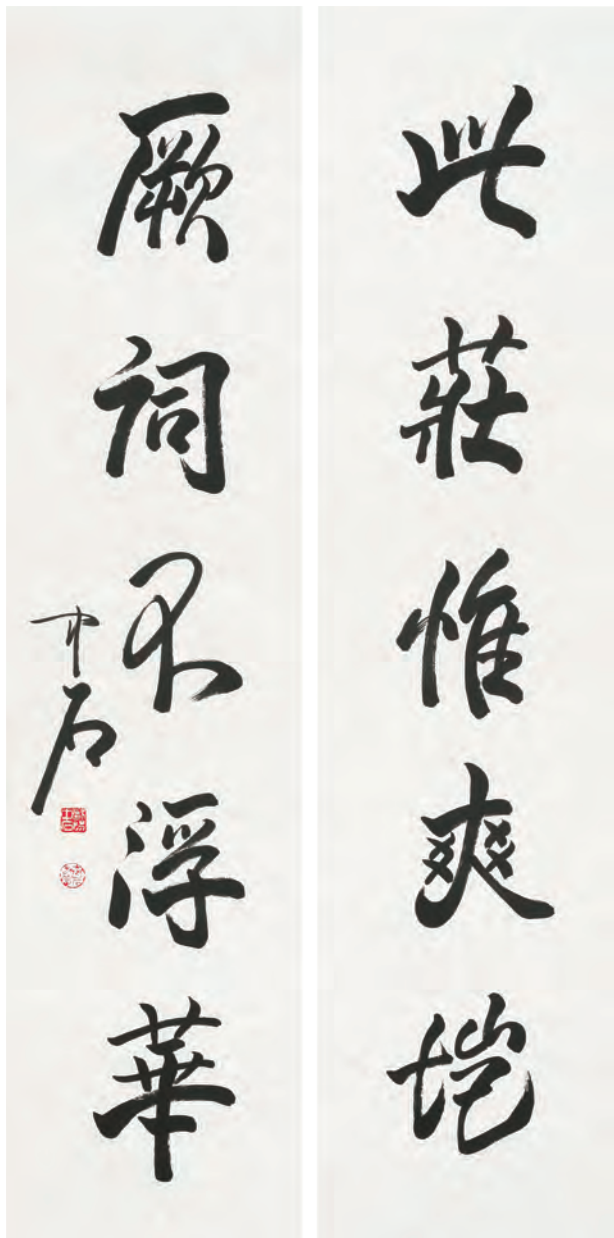 此莊惟爽垲
厥詞不浮華
中石